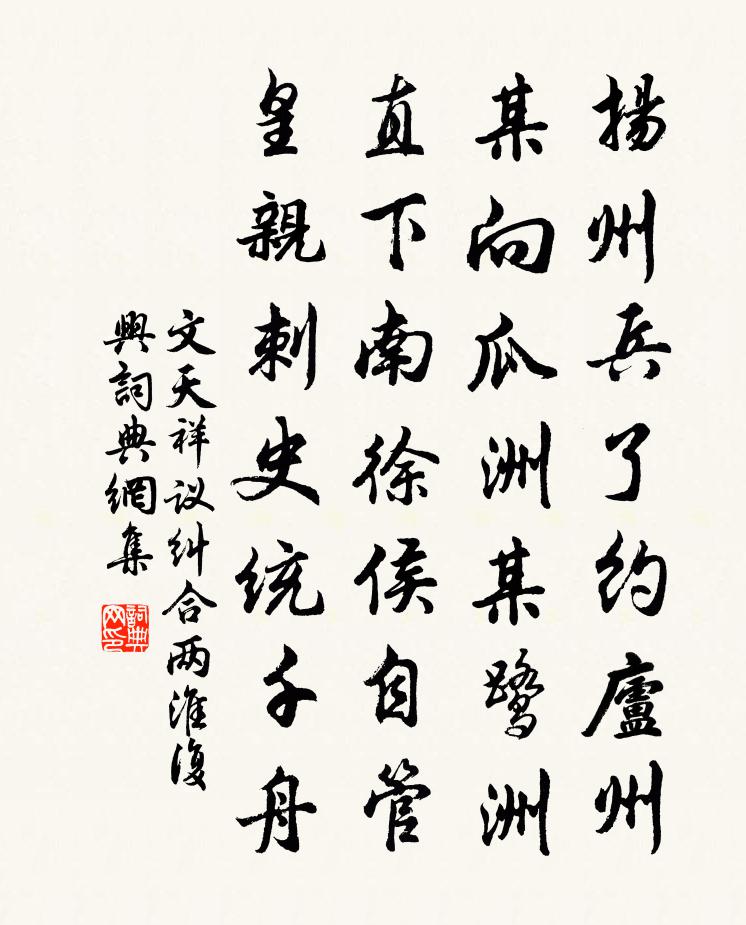 揚州兵了約廬州
某向瓜洲某鷺洲
直下南徐侯自管
皇親刺史統千舟
文天祥议糾合两淮復
興詞典網集
詞典網印